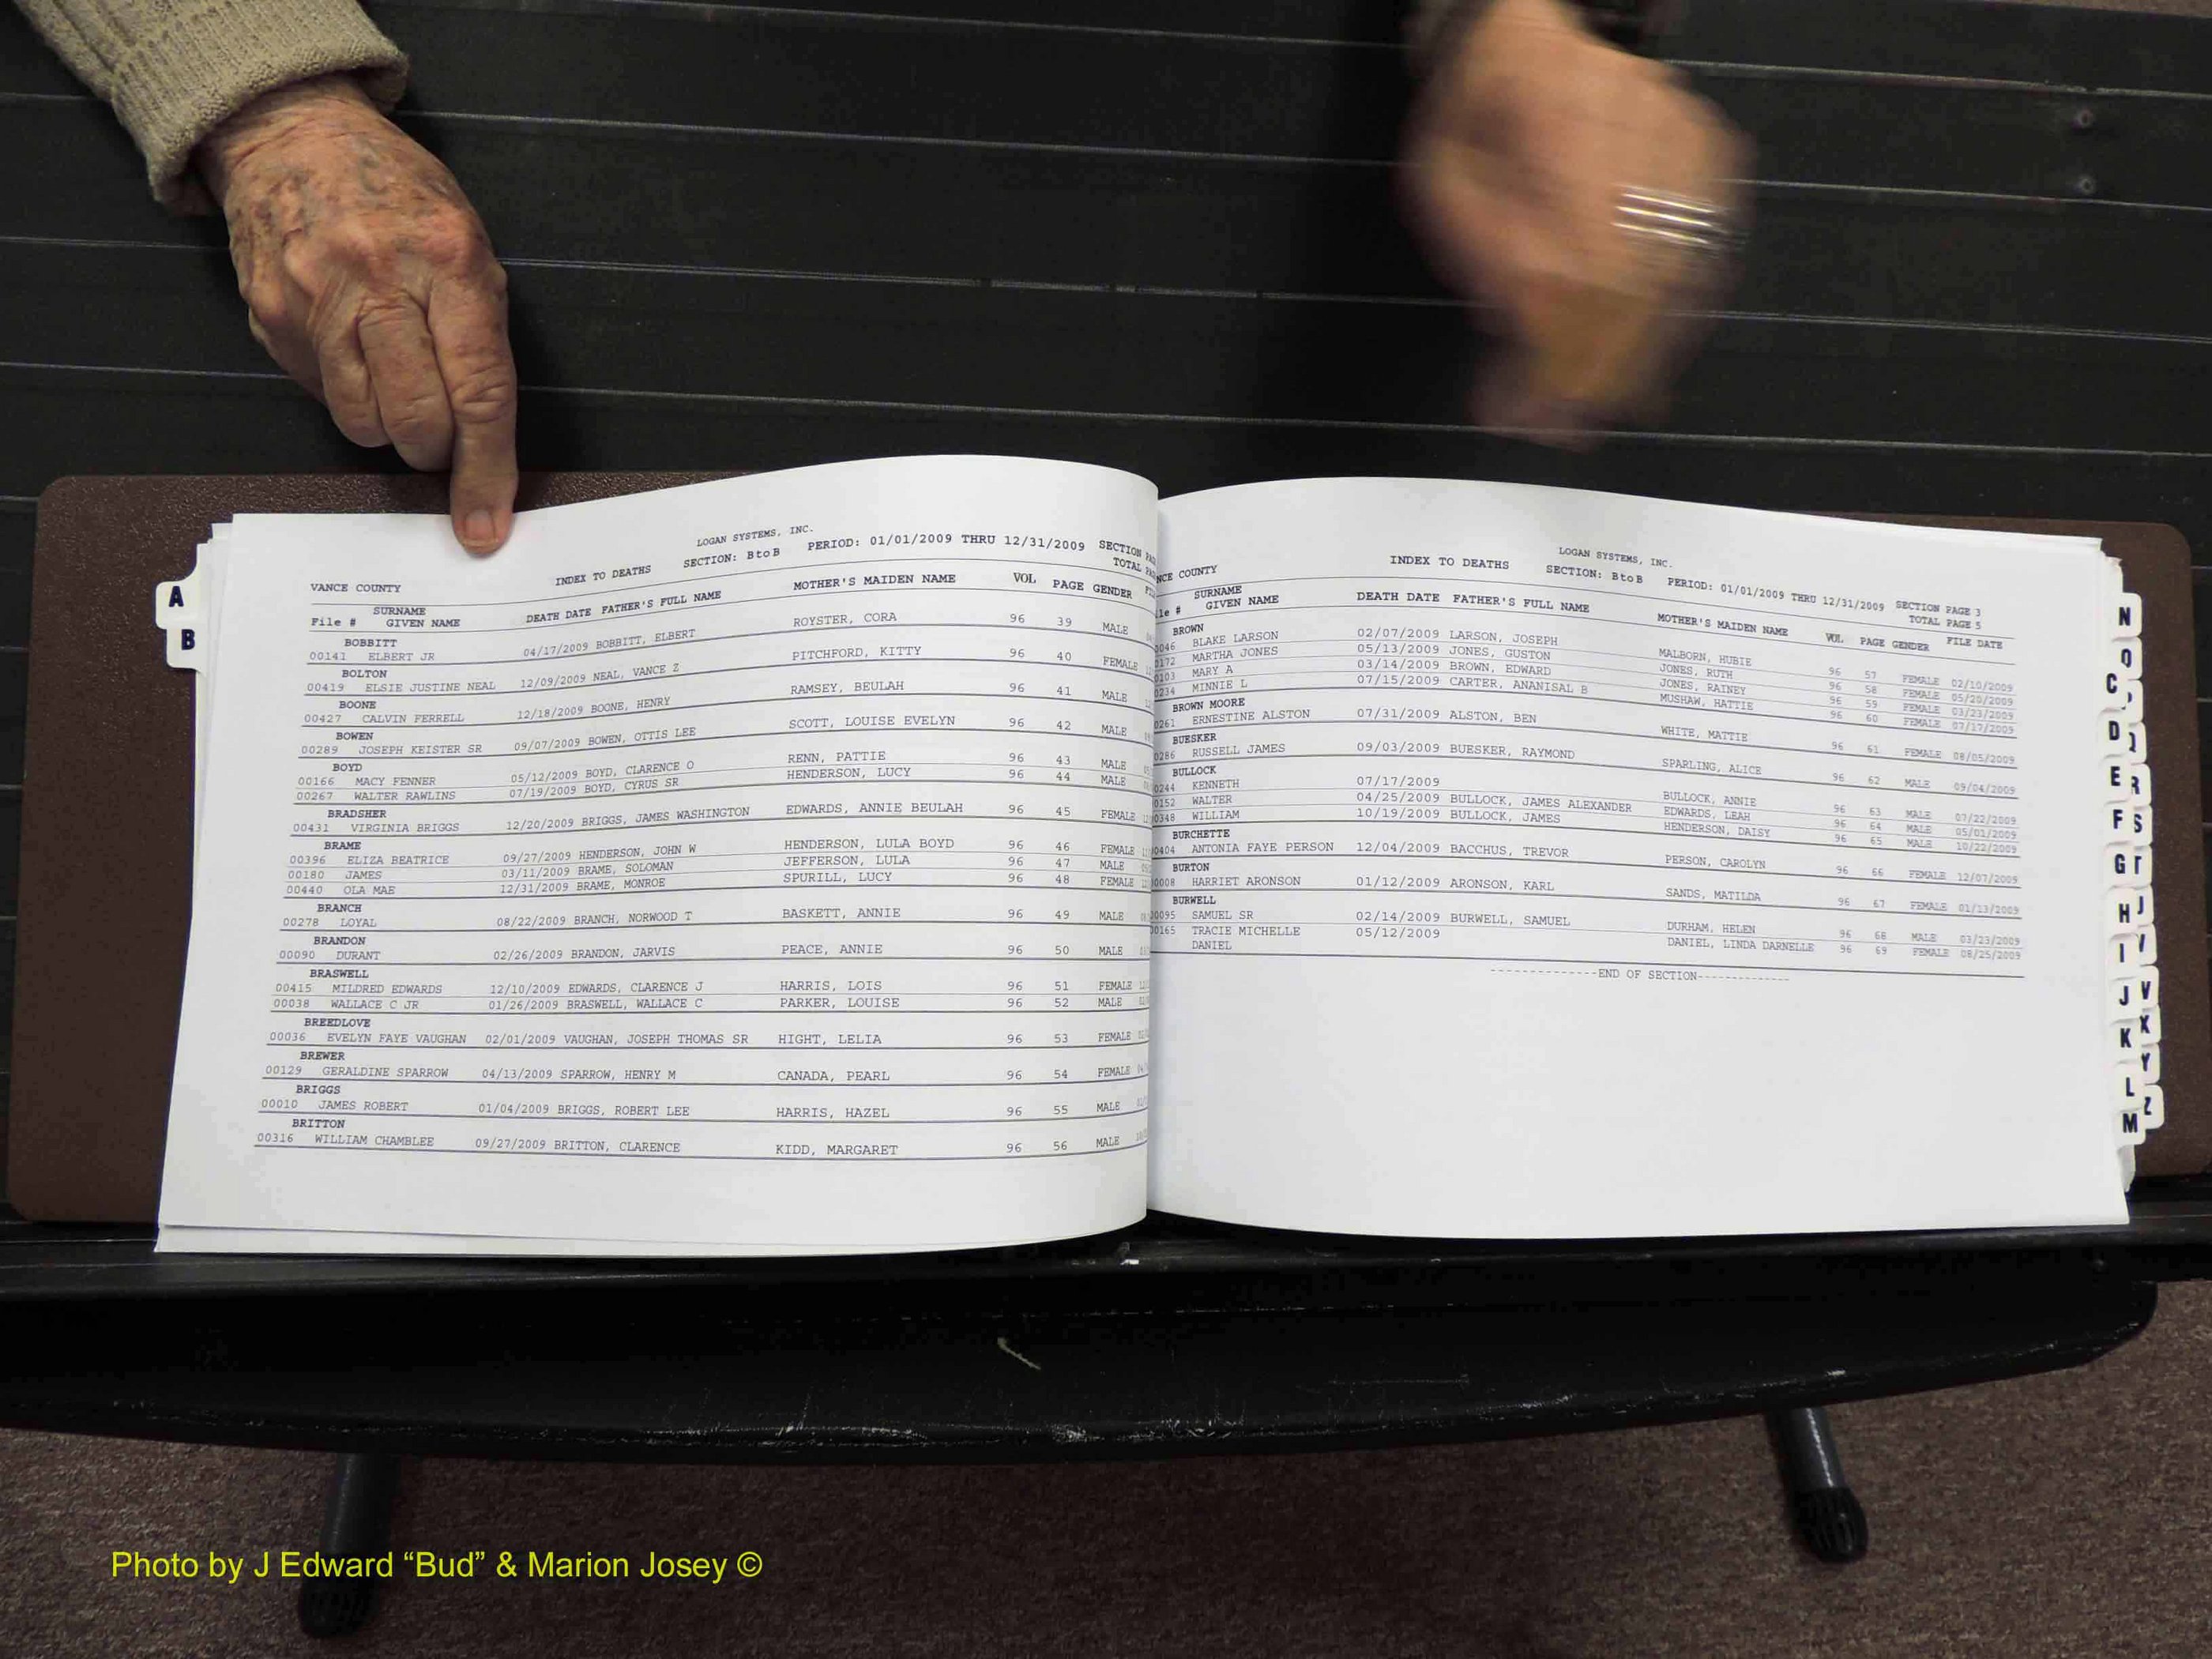 LOGAN SYSTEMS, INC.
VANCE COUNTY INDEX TO DEATHS SECTION: B to B PERIOD: 01/01/2009 THRU 12/31/2009 SECTION
TOTAL
SURNAME
File # GIVEN NAME DEATH DATE FATHER'S FULL NAME MOTHER'S MAIDEN NAME VOL PAGE GENDER
BOBBITT
00141 ELBERT JR 04/17/2009 BOBBITT, ELBERT ROYSTER, CORA 96 39 MALE
BOLTON
00419 ELSIE JUSTINE NEAL 12/09/2009 NEAL, VANCE Z PITCHFORD, KITTY 96 40 FEMALE
BOONE
00427 CALVIN FERRELL 12/18/2009 BOONE, HENRY RAMSEY, BEULAH 96 41 MALE
BOWEN
00289 JOSEPH KEISTER SR 09/07/2009 BOWEN, OTTIS LEE SCOTT, LOUISE EVELYN 96 42 MALE
BOYD
00166 MACY FENNER 05/12/2009 BOYD, CLARENCE O RENN, PATTIE 96 43 MALE
00267 WALTER RAWLINS 07/19/2009 BOYD, CYRUS SR HENDERSON, LUCY 96 44 MALE
BRADSHER
00431 VIRGINIA BRIGGS 12/20/2009 BRIGGS, JAMES WASHINGTON EDWARDS, ANNIE BEULAH 96 45 FEMALE
BRAME
00396 ELIZA BEATRICE 09/27/2009 HENDERSON, JOHN W HENDERSON, LULA BOYD 96 46 FEMALE
00180 JAMES 03/11/2009 BRAME, SOLOMAN JEFFERSON, LULA 96 47 MALE
00440 OLA MAE 12/31/2009 BRAME, MONROE SPURILL, LUCY 96 48 FEMALE
BRANCH
00278 LOYAL 08/22/2009 BRANCH, NORWOOD T BASKETT, ANNIE 96 49 MALE
BRANDON
00090 DURANT 02/26/2009 BRANDON, JARVIS PEACE, ANNIE 96 50 MALE
BRASWELL
00415 MILDRED EDWARDS 12/10/2009 EDWARDS, CLARENCE J HARRIS, LOIS 96 51 FEMALE
00038 WALLACE C JR 01/26/2009 BRASWELL, WALLACE C PARKER, LOUISE 96 52 MALE
BREEDLOVE
00036 EVELYN FAYE VAUGHAN 02/01/2009 VAUGHAN, JOSEPH THOMAS SR HIGHT, LELIA 96 53 FEMALE
BREWER
00129 GERALDINE SPARROW 04/13/2009 SPARROW, HENRY M CANADA, PEARL 96 54 FEMALE
BRIGGS
00010 JAMES ROBERT 01/04/2009 BRIGGS, ROBERT LEE HARRIS, HAZEL 96 55 MALE
BRITTON
00316 WILLIAM CHAMBLEE 09/27/2009 BRITTON, CLARENCE KIDD, MARGARET 96 56 MALE
LOGAN SYSTEMS, INC.
NCE COUNTY INDEX TO DEATHS SECTION: B to B PERIOD: 01/01/2009 THRU 12/31/2009 SECTION PAGE 3
TOTAL PAGE 5
SURNAME
ile # GIVEN NAME DEATH DATE FATHER'S FULL NAME MOTHER'S MAIDEN NAME VOL PAGE GENDER FILE DATE
BROWN
0046 BLAKE LARSON 02/07/2009 LARSON, JOSEPH MALBORN, HUBIE 96 57 FEMALE 02/10/2009
0172 MARTHA JONES 05/13/2009 JONES, GUSTON JONES, RUTH 96 58 FEMALE 05/20/2009
0103 MARY A 03/14/2009 BROWN, EDWARD JONES, RAINEY 96 59 FEMALE 03/23/2009
0234 MINNIE L 07/15/2009 CARTER, ANANISAL B MUSHAW, HATTIE 96 60 FEMALE 07/17/2009
BROWN MOORE
0261 ERNESTINE ALSTON 07/31/2009 ALSTON, BEN WHITE, MATTIE 96 61 FEMALE 08/05/2009
BUESKER
0286 RUSSELL JAMES 09/03/2009 BUESKER, RAYMOND SPARLING, ALICE 96 62 MALE 09/04/2009
BULLOCK
0244 KENNETH 07/17/2009 BULLOCK, ANNIE 96 63 MALE 07/22/2009
0152 WALTER 04/25/2009 BULLOCK, JAMES ALEXANDER EDWARDS, LEAH 96 64 MALE 05/01/2009
0348 WILLIAM 10/19/2009 BULLOCK, JAMES HENDERSON, DAISY 96 65 MALE 10/22/2009
BURCHETTE
0404 ANTONIA FAYE PERSON 12/04/2009 BACCHUS, TREVOR PERSON, CAROLYN 96 66 FEMALE 12/07/2009
BURTON
0008 HARRIET ARONSON 01/12/2009 ARONSON, KARL SANDS, MATILDA 96 67 FEMALE 01/13/2009
BURWELL
0095 SAMUEL SR 02/14/2009 BURWELL, SAMUEL DURHAM, HELEN 96 68 MALE 03/23/2009
0165 TRACIE MICHELLE 05/12/2009 DANIEL, LINDA DARNELLE 96 69 FEMALE 08/25/2009
DANIEL
--------------END OF SECTION------------
A
B
C
D
E
F
G
H
I
J
K
L
M
N
O
R
S
T
V
X
Y
Z
Photo by J Edward “Bud” & Marion Josey ©